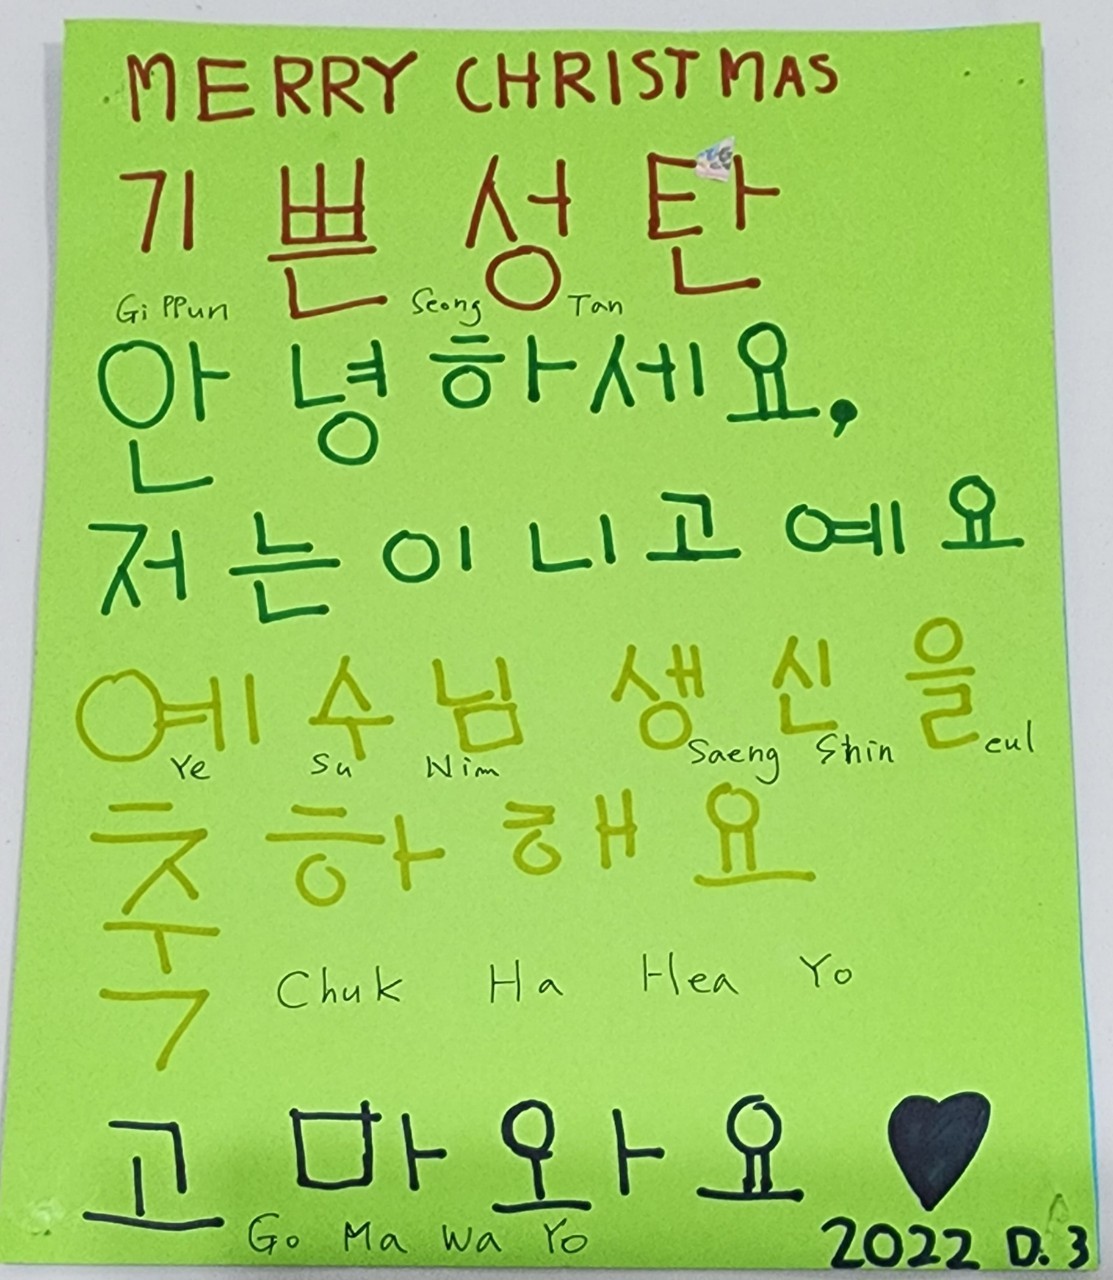 MERRY CHRISTMAS
기쁜 성탄
Gi PPun Seong Tan
안녕하세요,
저는 이니고예요
예수님 생신을
Ye Su Nim Saeng Shin eul
축하해요
Chuk Ha Hea Yo
고마와요
Go Ma Wa Yo
2022 D. 3